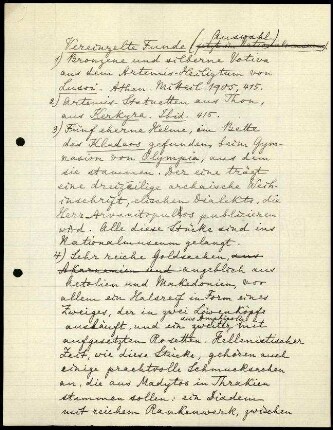 Vereinzelte Funde (Auswahl)
1) Bronzene und silberne Votive
aus dem Artemis-Heiligtum von
Lusoi. Athen. Mitteil 1905, 415.
2) Artemis-Statuetten aus Thon,
aus Kerkyra. Ibid. 415.
3) Fünf eherne Helme, im Bette
des Kladeos gefunden, beim Gym-
nasion von Olympia, aus dem
sie stammen. Der eine trägt
eine dreizeilige archaische Weih-
inschrift, eleischen Dialekts, die
Herr Arvanitopullos publicieren
wird. Alle diese Stücke sind ins
Nationalmuseum gelangt.
4) Sehr reiche Goldsachen, aus
Akarnanien und angeblich aus
Aetolien und Makedonien, vor
allem ein Halsreif in Form eines
Zweiges, der in zwei Löwenköpfe
ausläuft, und ein zweiter mit
aufgesetzten Rosetten. Hellenistischer
Zeit, wie diese Stücke, gehören auch
einige prachtvolle Schmucksachen
an, die aus Madytos in Thrakien
stammen sollen: ein Diadem
mit reichem Rankenwerk, zwischen